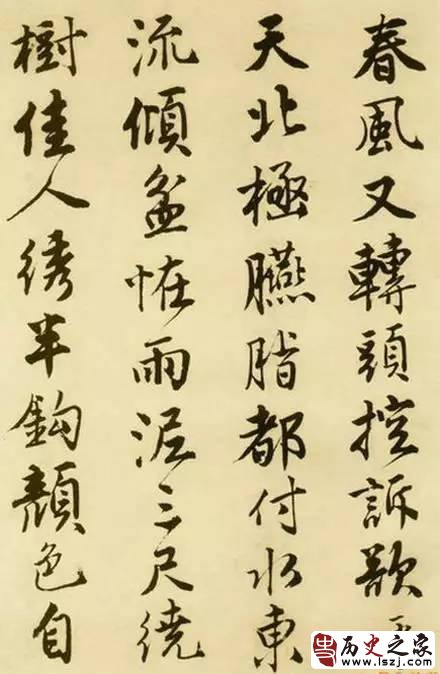 春風又轉頭控訴欲
天北極臙脂都付水東
流傾盆恠雨泥三尺繞
樹佳人綉半鈎顏色自
历史之家
www.lszj.com